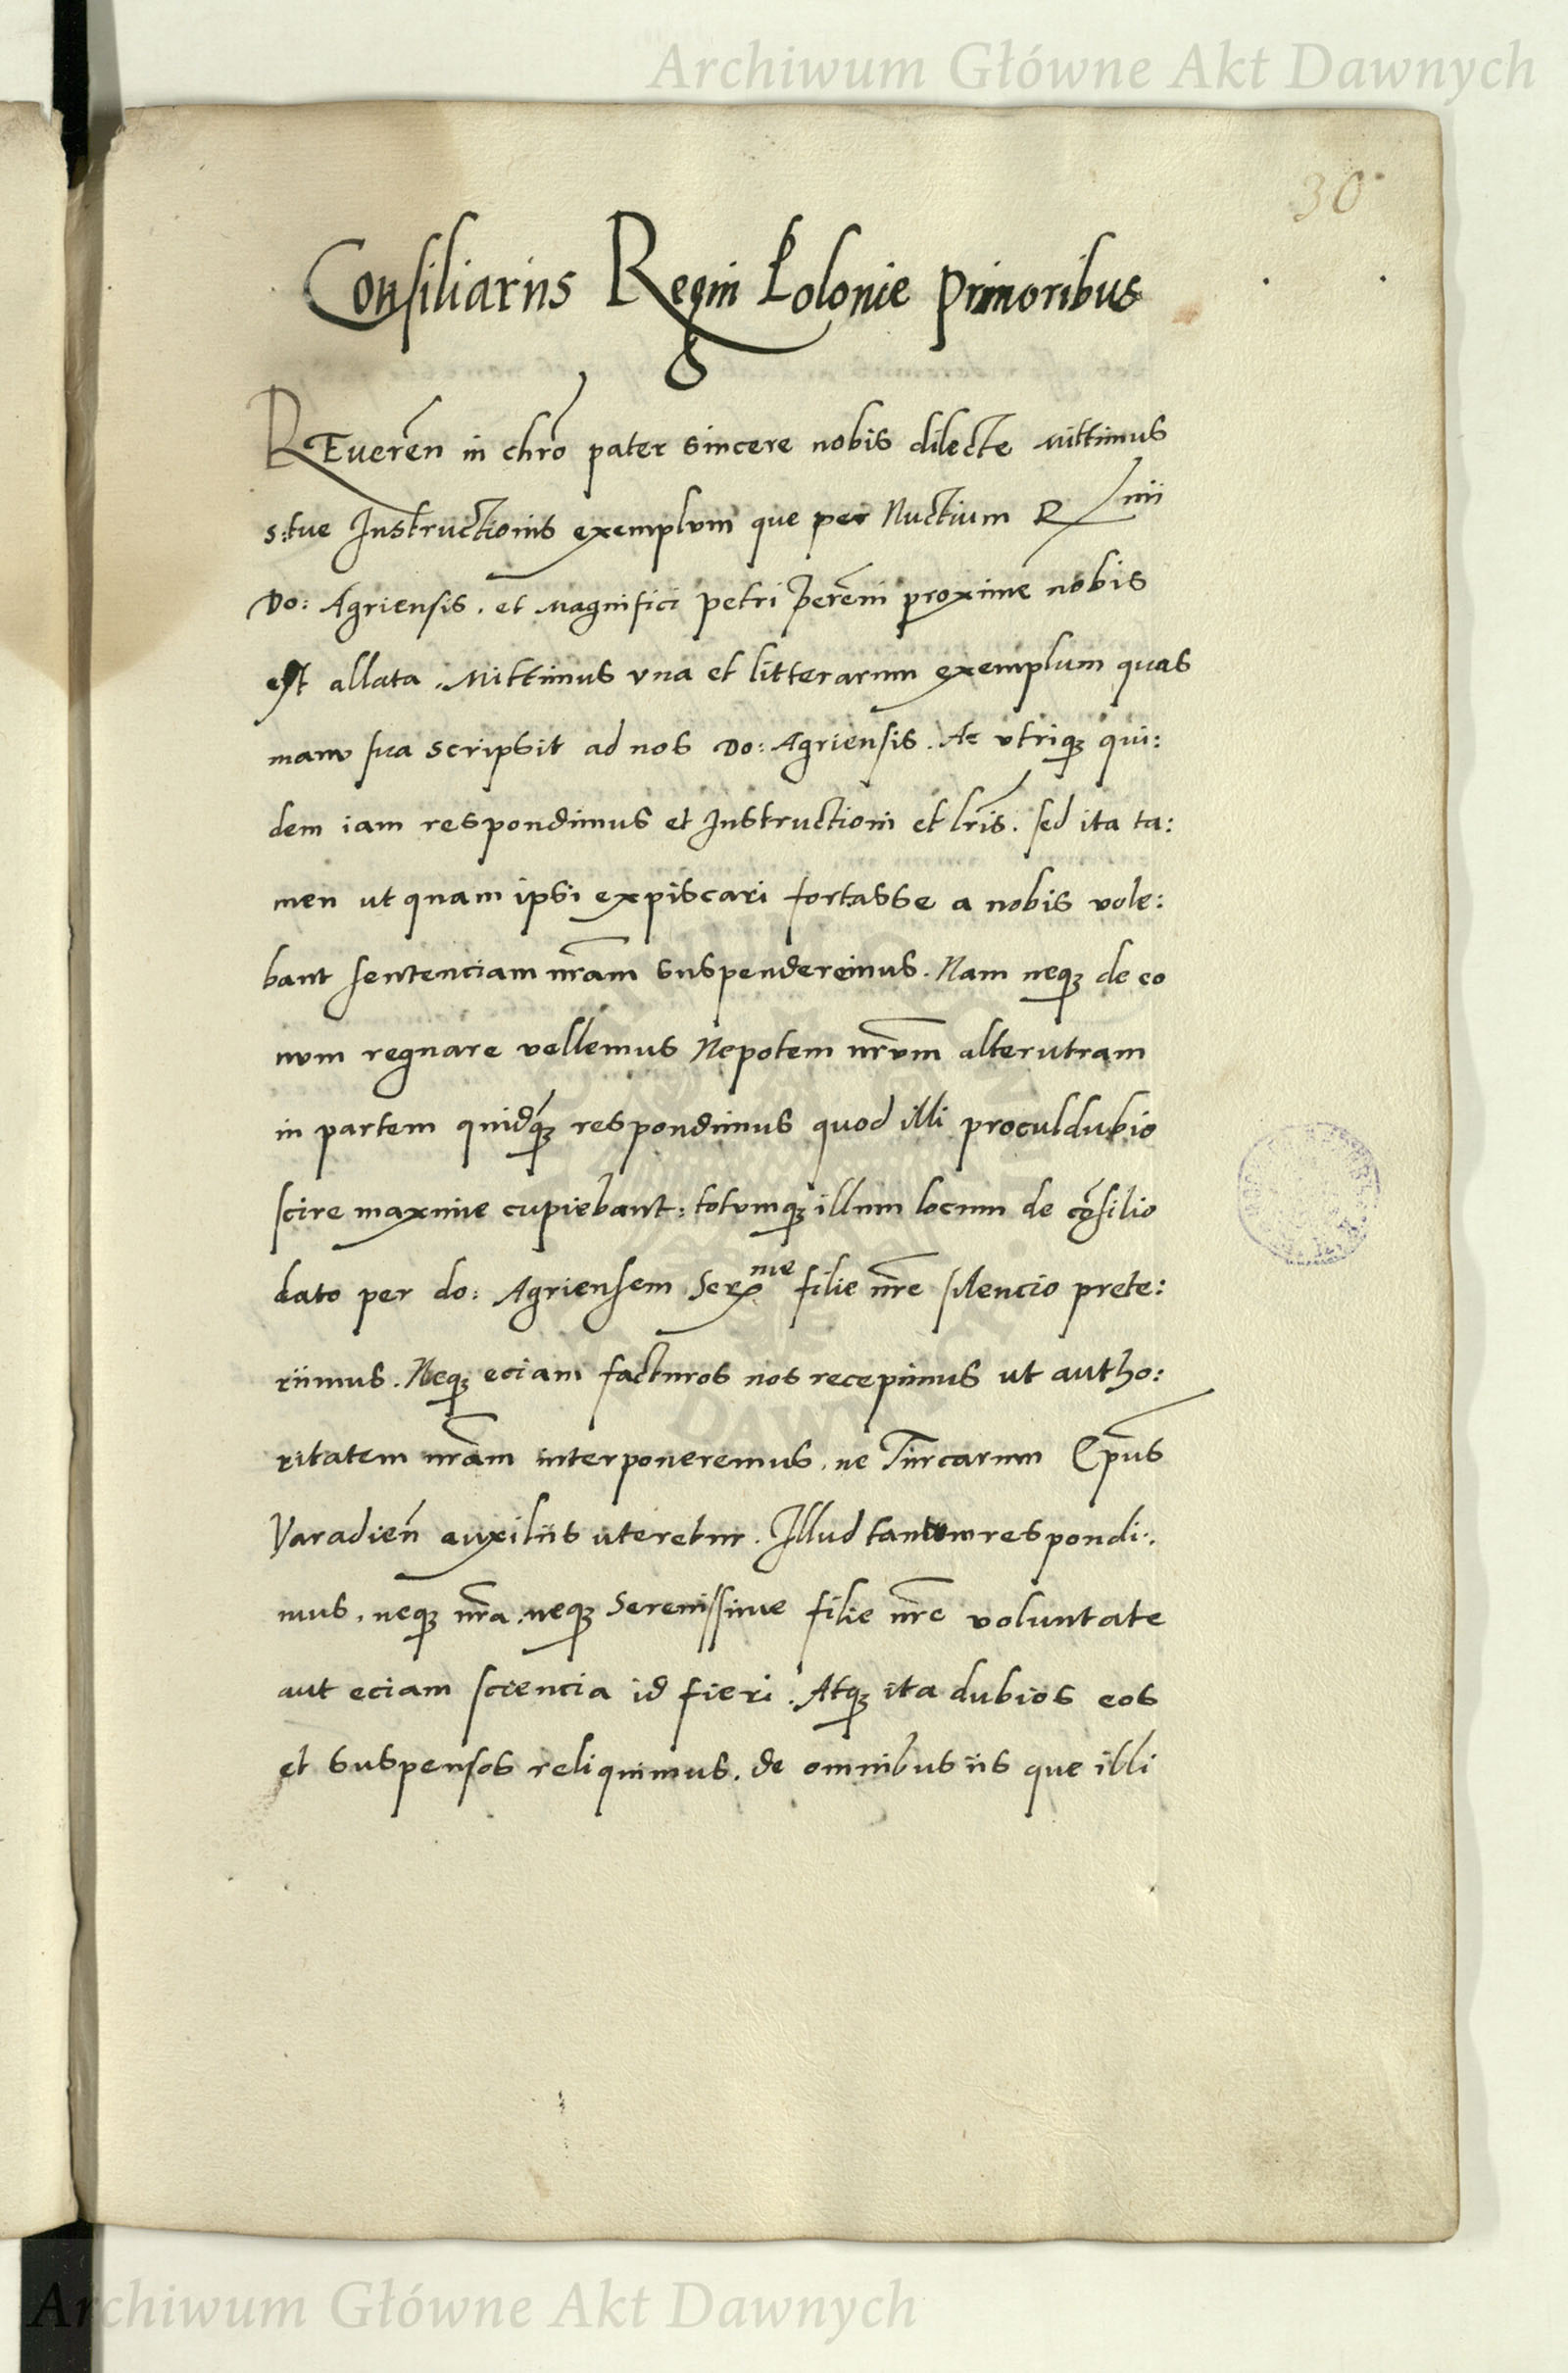 Archiwum Główne Akt Dawnych
30
Consiliariis Regni Polonie Primoribus
REueren̄ in chr̄o pater sincere nobis dilecte Mittimus
s: tue Instructionis exemplum que per Nuctium R mi
Do: Agriensis . et Magnifici Petri Pereni proxime nobis
est allata . Mittimus vna et litterarum exemplum quas
manu sua scripsit ad nos Do: Agriensis . Ac vtriq3 qui:
dem iam respondimus et Instructioni et lr̄is . sed ita ta:
men ut quam ipsi expiscari fortasse a nobis vole:
bant sentenciam nr̄am suspenderemus . Nam neq3 de eo
num regnare vellemus Nepotem nr̄vm alterutram
in partem quidq3 respondimus quod illi proculdubio
scire maxime cupiebant: totumq3 illum locum de cōsilio
dato per do: Agriensem Ser me filie nr̄e silencio prete:
riimus . Neq3 eciam facturos nos recepimus ut autho:
ritatem nr̄am interponeremus . ne Turcarum Ep̄us
Varadien̄ auxiliis uteretur . Illud tantum respondi:
mus . neq3 nr̄a . neq3 Serenissime filie nr̄e voluntate
aut eciam sciencia id fieri . Atq3 ita dubios eos
et suspensos reliquimus . de omnibus iis que illi
Archiwum Główne Akt Dawnych